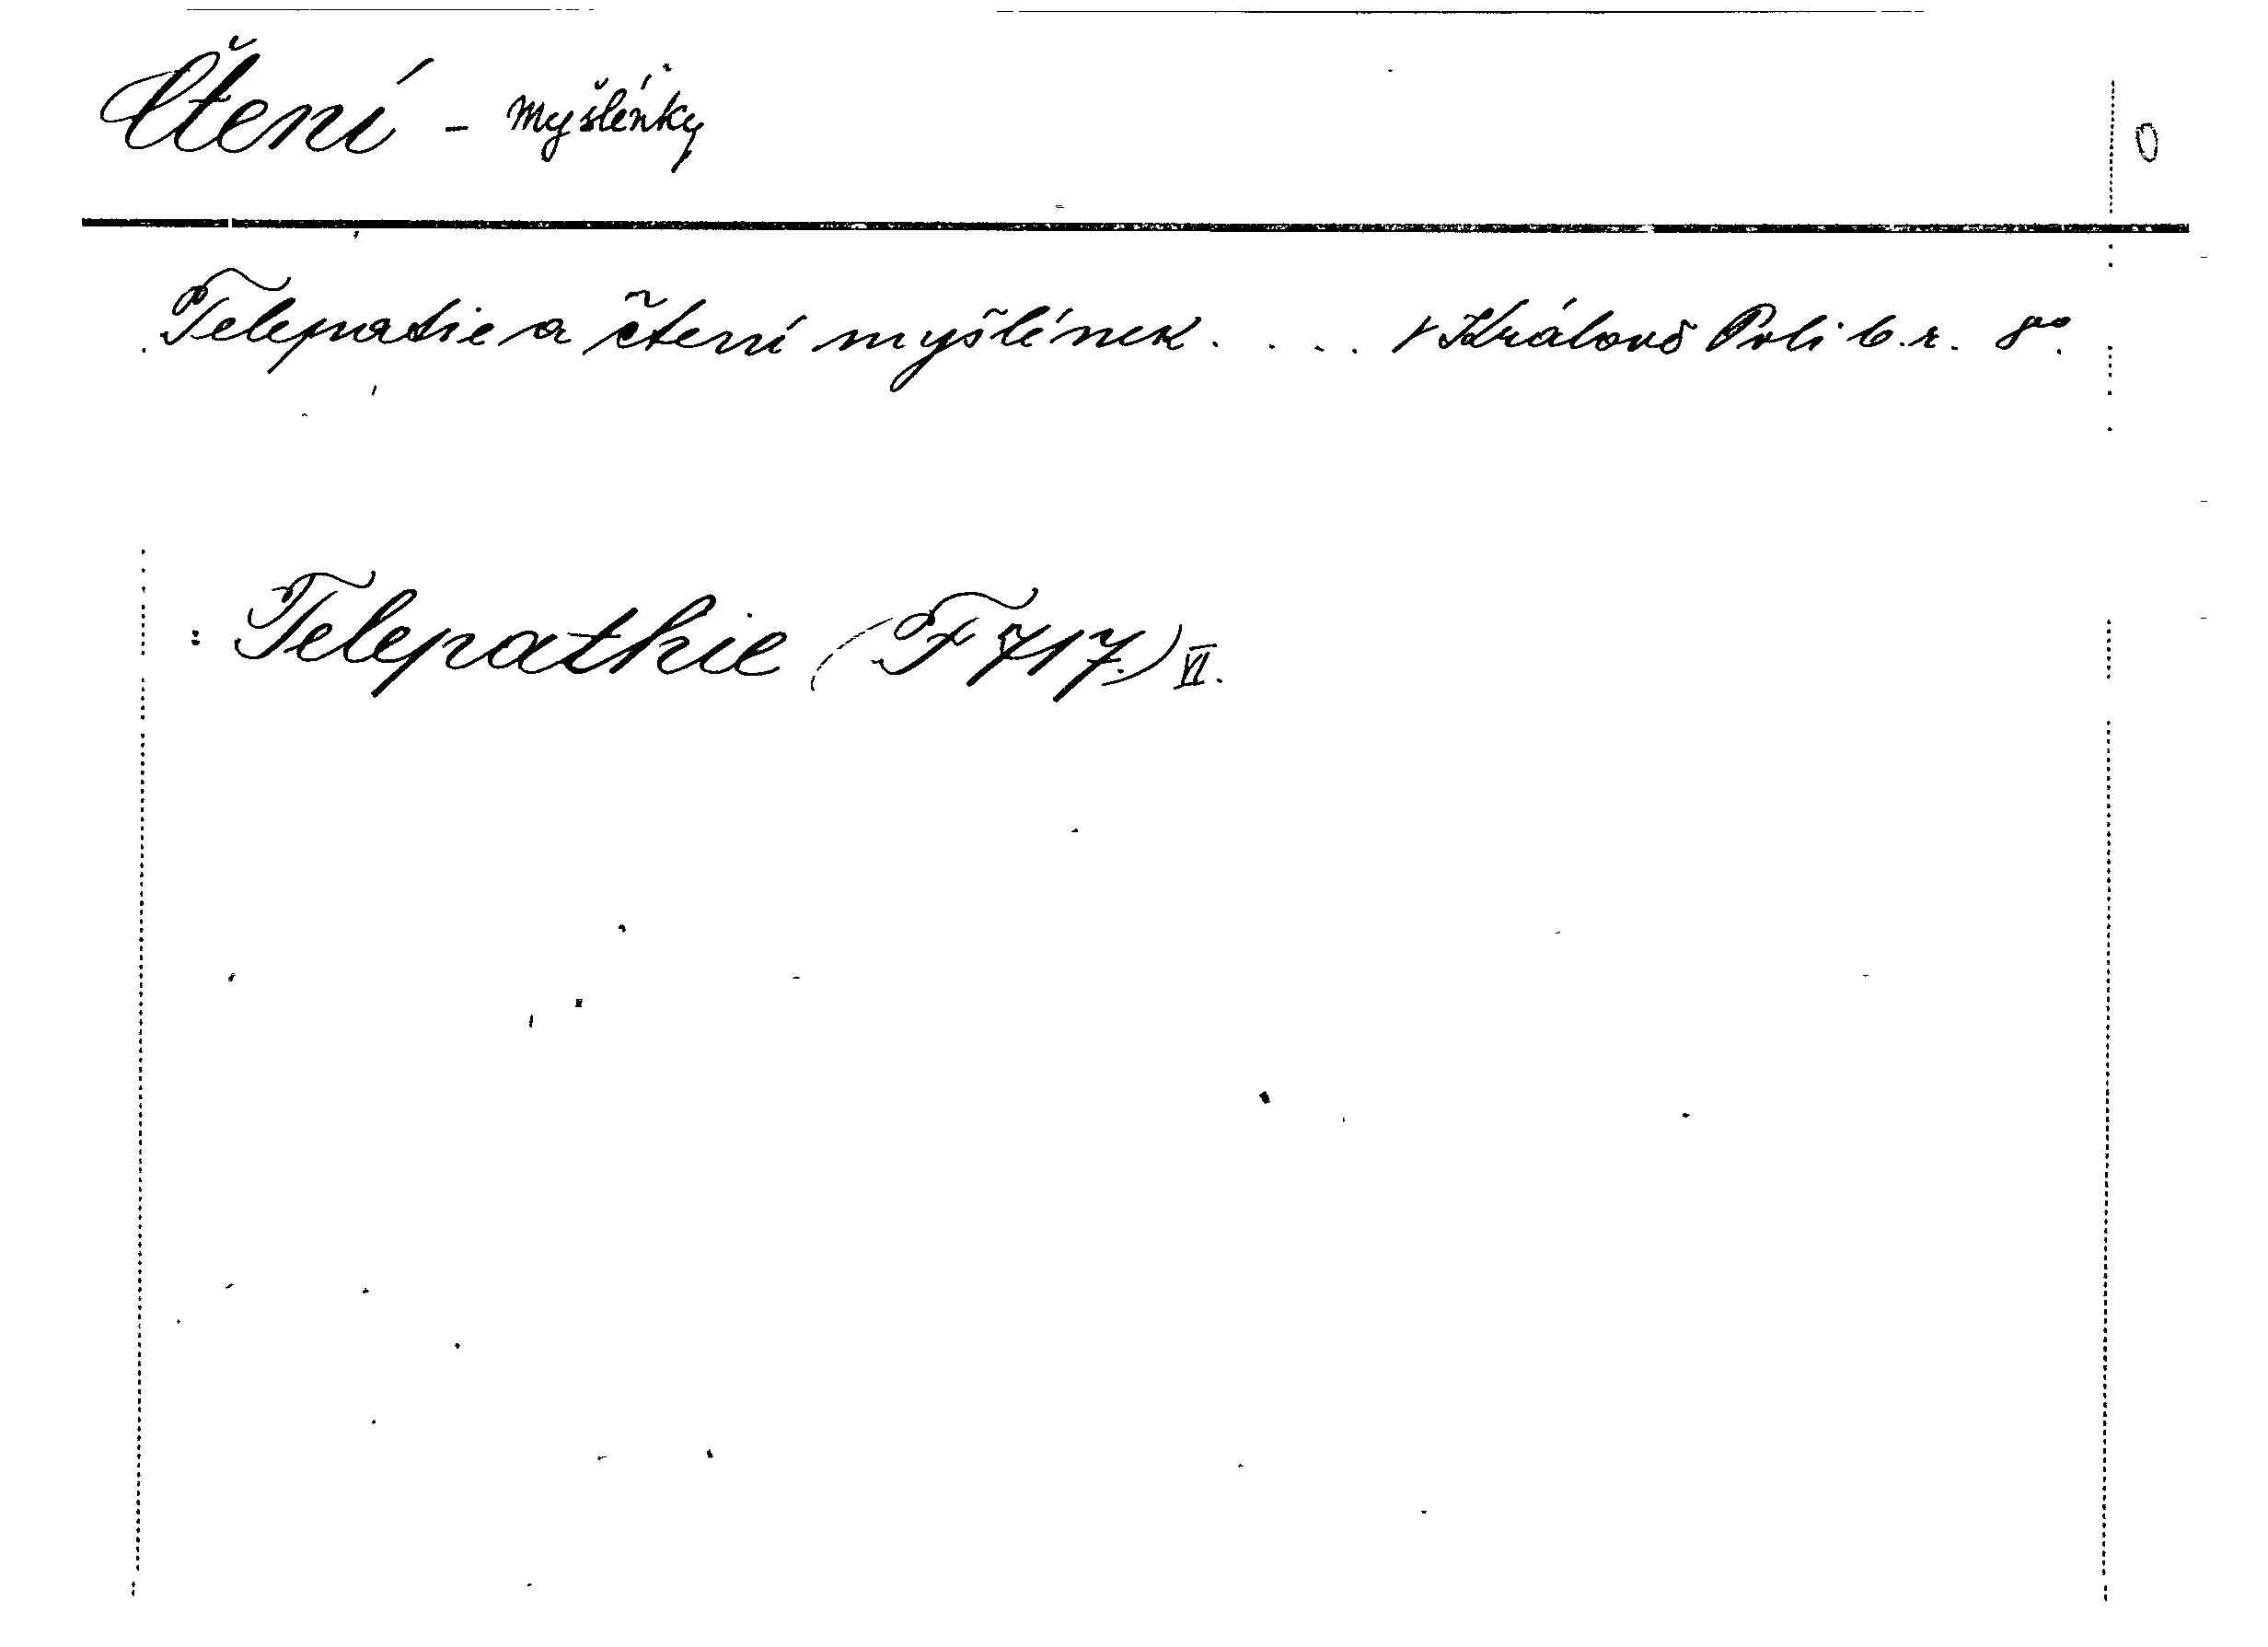 Čtení - myšlénky
0
Telepatie a čtení myšlének. . . . V Králově Poli b. r. 8°.
: Telepathie (F 717.) VI.